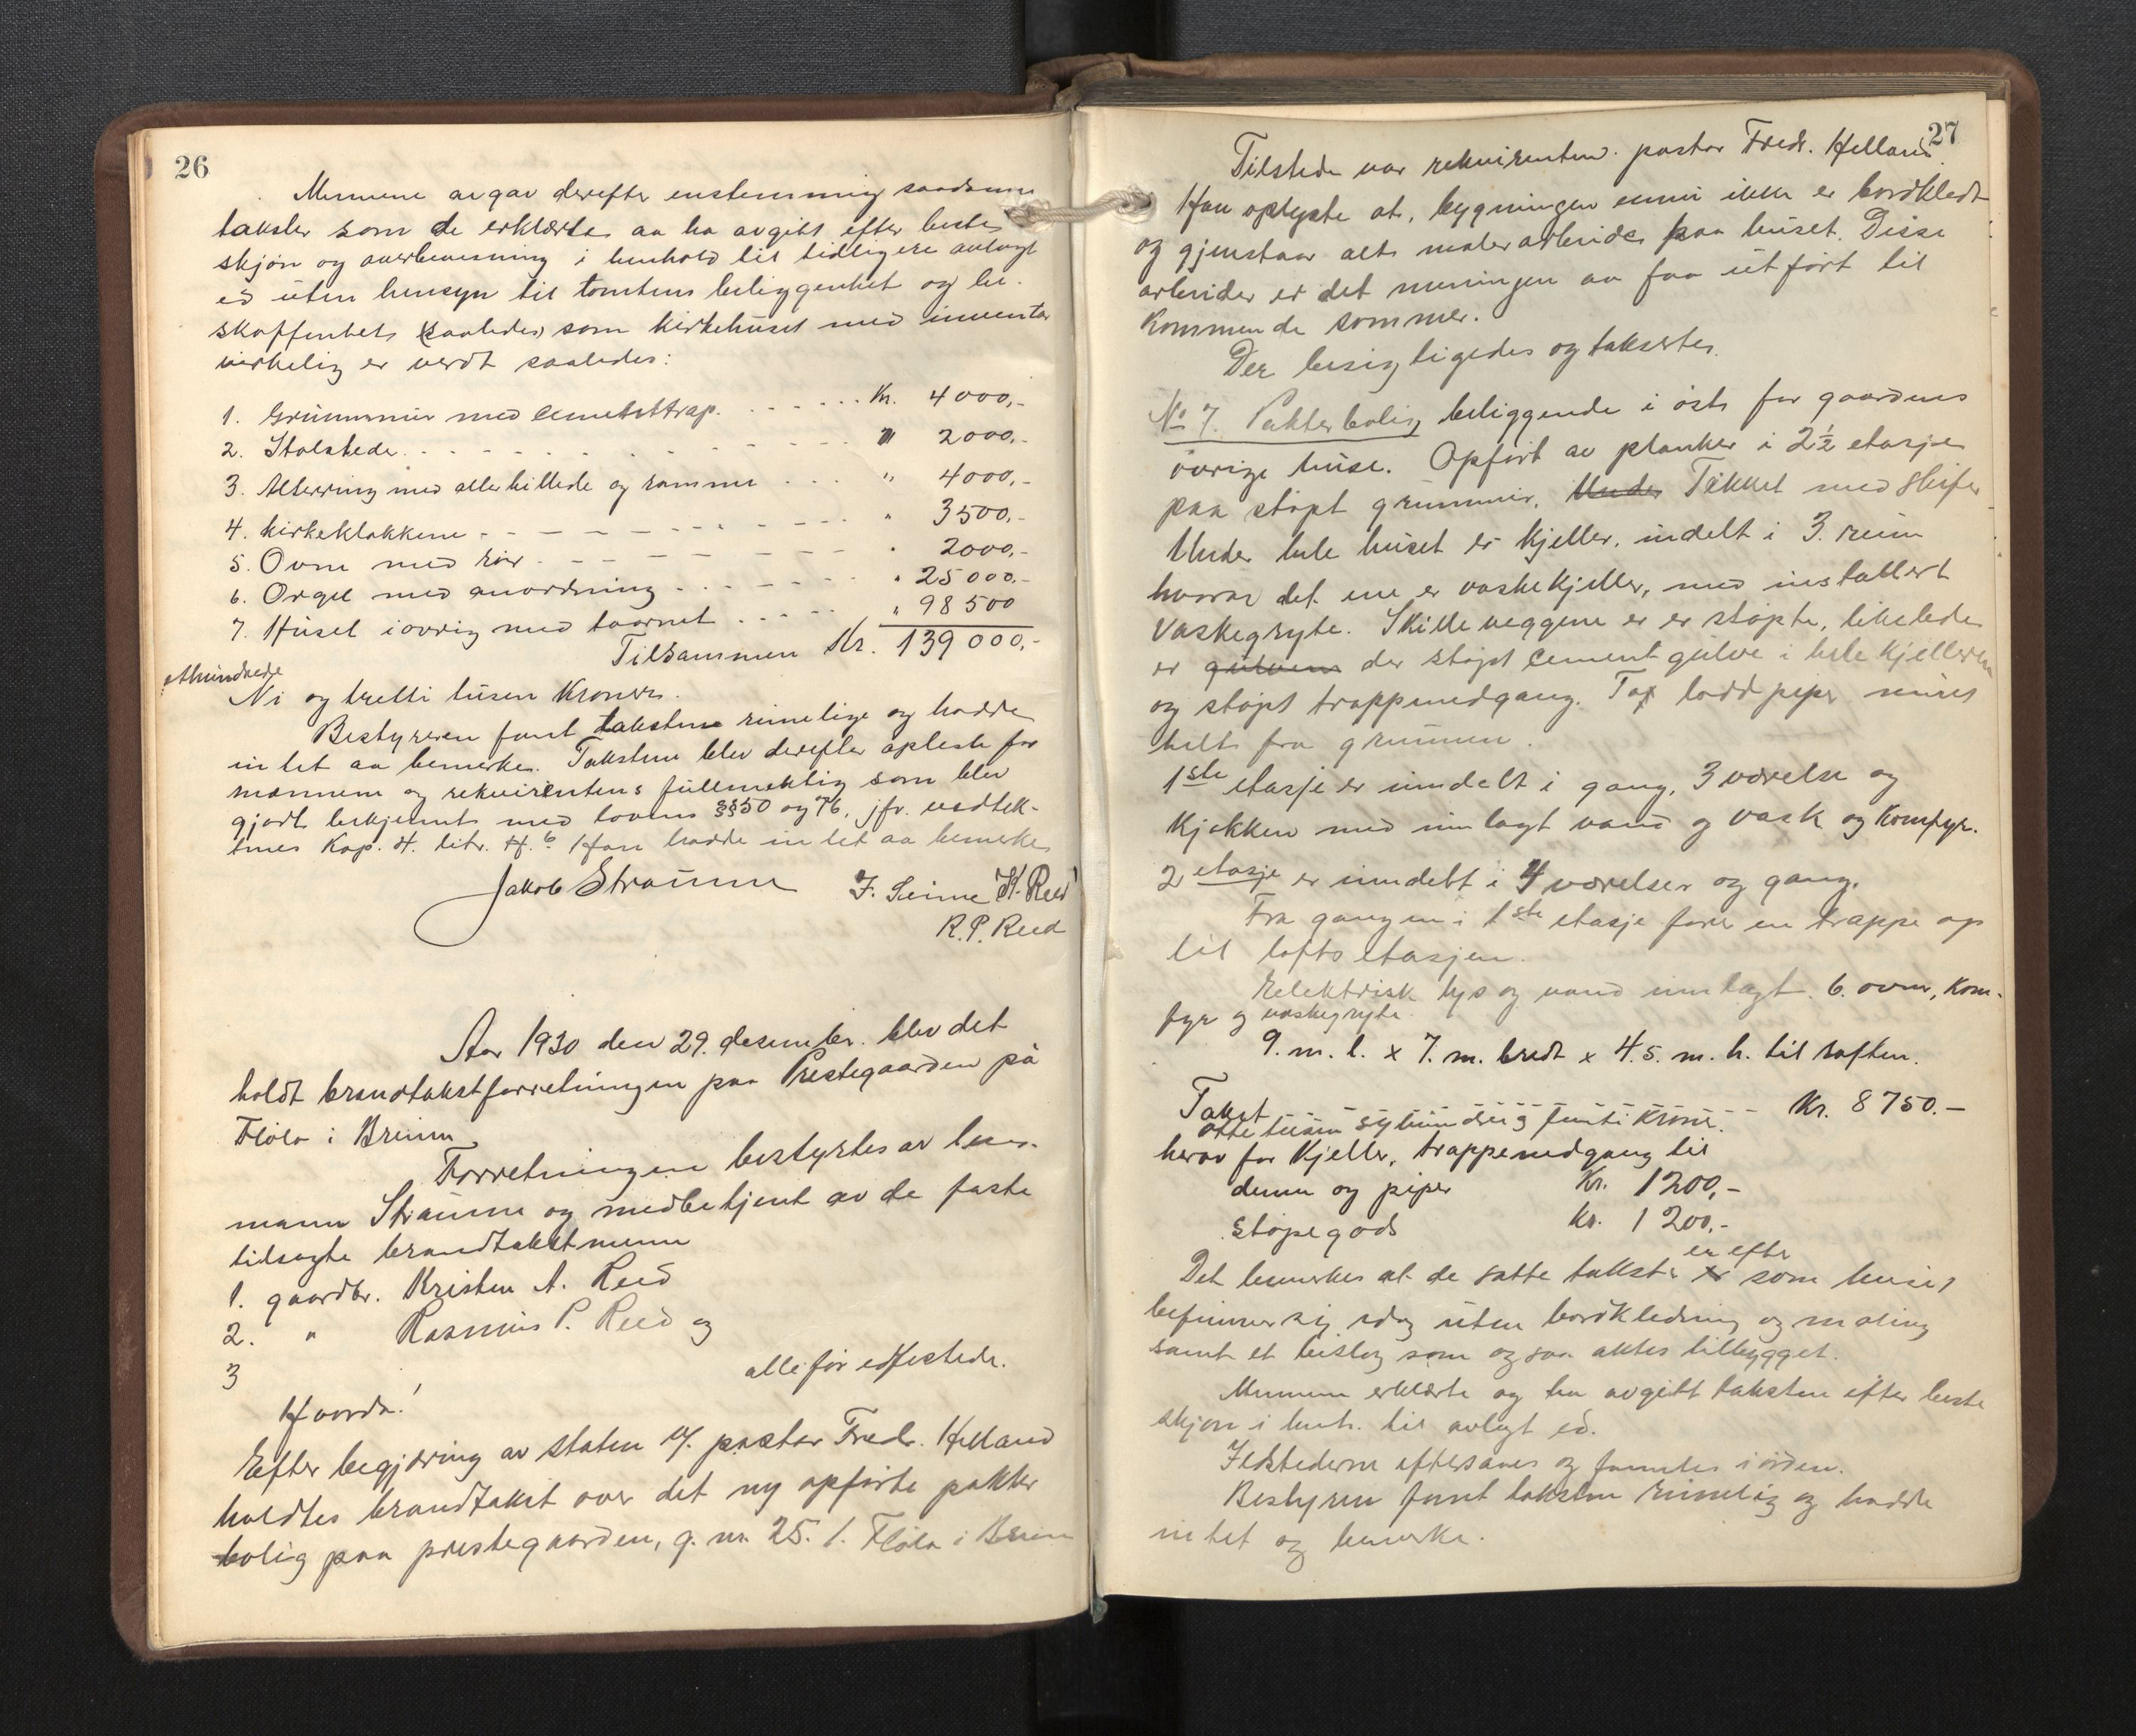 26
Mennene avgav derefter enstemmig saadanne
takster som de erklærte aa ha avgitt efter beste
skjøn og overbevisning i henhold til tidligere avlagt
ed uten hensyn til tomtens beliggenhet og be-
skaffenhet (saaledes) som kirkehuset med inventar
virkelig er verdt saaledes:
1. Grunnmur med cementtrap. . . . . . . Kr. 4000,-
2. Stolstede. . . . . . . . . . " 2000,-
3. Alterring med alterbillede og ramme . . . " 4000,-
4. Kirkeklokkene - - - - - - - - - " 3500,-
5. Ovne med rør - - - - - - - - " 2000,-
6. Orgel med anordning - - - - - - - " 25000,-
7. Huset iøvrig med taarnet . . . - - - " 98500
Tilsammen Kr. 139000,-
ethundrede
Ni og tretti tusen Kroner.
Bestyreren fant takstene rimelige og hadde
intet aa bemerke. Takstene blev derefter oplest for
mennene og rekvirentens fullmektig som blev
gjort bekjennt med lovens §§50 og 76, jfr. vedtek-
tenes Kap. 4. litr. H. 6 Han hadde intet aa bemerke
Jakob Straume F. Seime K. Reed
R. P. Reed
Aar 1930 den 29. desember. blev det
holdt brandtakstforretningen paa Prestegaarden på
Fløla i Breim
Forretningen bestyrtes av lens-
mann Straume og medbetjent av de faste
tilsagte brandtakstmenn
1. gaardbr. Kristen A. Reed
2. " Rasmus P. Reed og
3 alle før edfestede.
Hvorda!
Efter begjæring av staten v/. pastor Fredr. Helland
holdtes brandtakst over det ny opførte pakter
bolig paa prestegaarden, g. nr. 25. 1. Fløla i Breim
27
Tilstede var rekvirenten. pastor Fredr. Helland.
Han oplyste at, bygningen ennu ikke er bordkledt
og gjenstaar alt malerarbeide paa huset. Disse
arbeider er det meningen aa faa utført til
Kommende sommer.
Der besigtigedes og takserte.
No 7. Pakterbolig beliggende i øst for gaardens
øvrige huse. Opført av planker i 2½ etasje
paa støpt grunnmur, Under Tækket med skifer
Under hele huset er kjeller, indelt i 3. rum
hvorav det ene er vaskekjeller, med installert
Vaskegryte. Skilleveggene er er støpte, likelede
er gulvene der støpt cementgulve i hele kjelleren
og støpt trappenedgang. To lodd piper muret
helt fra grunnen.
1ste etasje er inndelt i gang, 3 værelse og
Kjøkken med innlagt vand og vask og Komfyr.
2 etasje er inndelt i 4 værelser og gang.
Fra gangen i 1ste etasje fører en trappe op
til loftsetasjen.
Eelektrisk lys og vand innlagt. 6. ovne, kom-
fyr og vaskegryte.
9. m. l. x 7. m. bredt x 4.5. m. h. til raften.
Takst - - - - - - - - - - - - Kr. 8750.-
otte tusen syvhundre og femti Kroner.
herav for Kjeller, trappenedgang til
denne og piper Kr. 1200,-
støpegods Kr. 1200,-
en efter
Det bemerkes at de satte takster er som huset
befinner sig idag uten bordkledning og maling
samt et bislag som ogsaa aktes tilbygget.
Mennene erklærte og ha avgitt taksten efter beste
skjøn i henh. til avlagt ed.
Ildstederne eftersaaes og fanntes i orden.
Bestyren fant taksten rimelig og hadde
intet og bemerke.